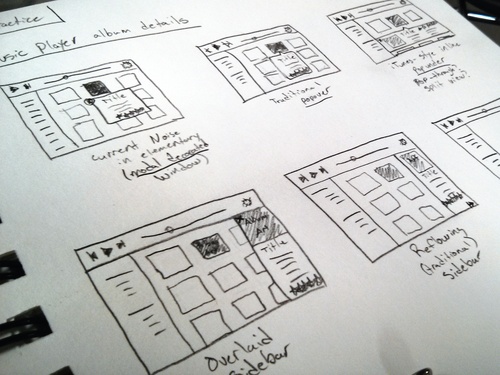 actice
usic player album details
Title
current Noise
in elementary
(modal decorated
window)
Title
Traditional
popover
Title
iTunes-style inline
expander
split view?
Album
Art
Title
overlaid
sidebar
Title
Reflowing
(traditional)
sidebar